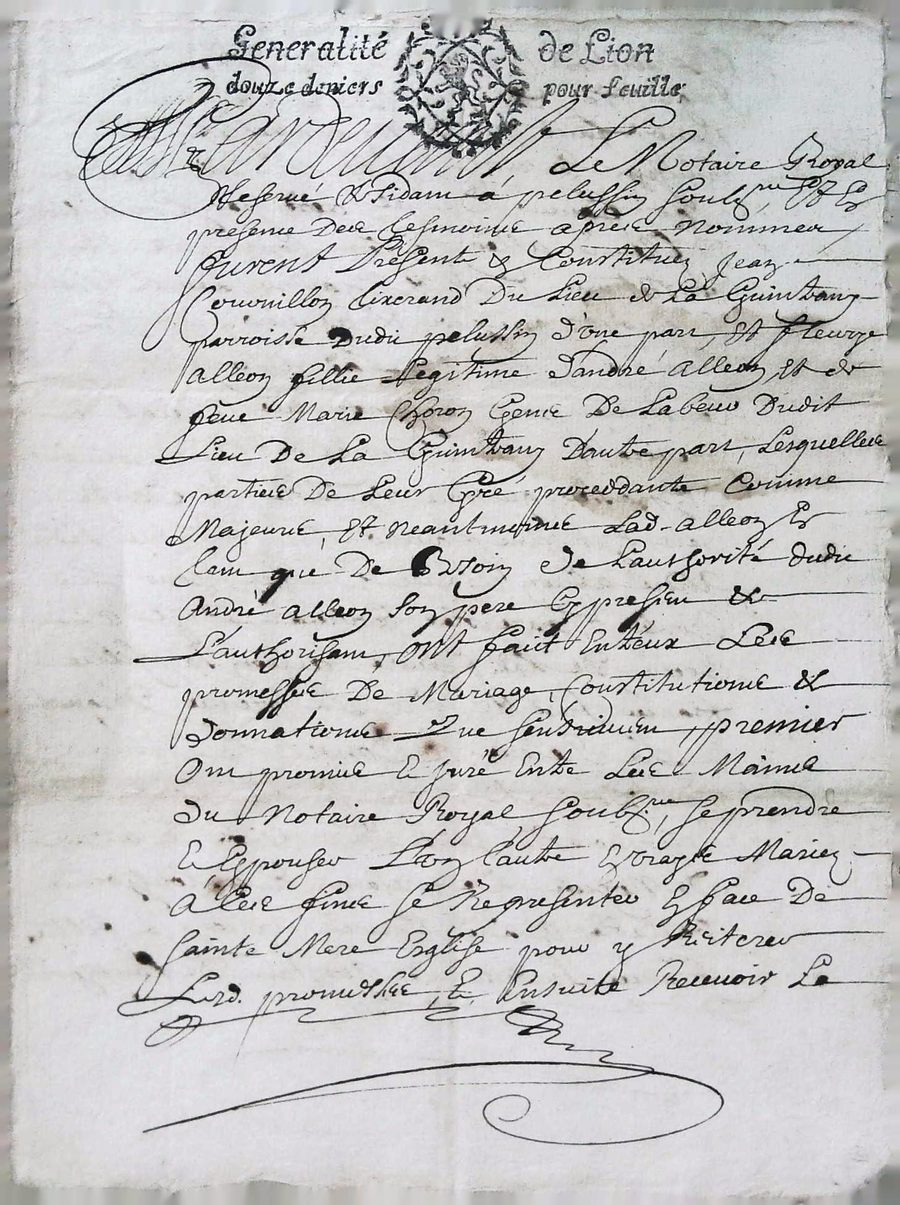 Generalité de Lion
douze deniers pour feuille
Par devant Le Notaire Royal
Reservé Residam á pelussin soubz.ne, Et Es
presence Dece tesmoince aprece Nommea
furent Present & Constituez Jean
Couvnillon tixerand Du Lieu de La Guintany
parroisse Dudit pelussin d'une part, Et fleurye
alleon fillie Legitime d'andré alleon Et de
feue Marie Choron Genie De Labeur Dudit
Lieu De La Guintany D'autre part, Lesquellece
partiece De Leur Gré proceddante Comme
Majeure, Et neantmoince Lad. alleon Es
tam que De Besoin de L'authorité dudit
André alleon son pere Cy presem &
L'authorisam, ont faict Entreux Lece
promessece De Mariage, Constitutione &
donnatione que sensuivem, premier
Om promice E juré Entre Lece Maince
du Notaire Royal soubz.ne, se prendre
E Espouser L'un L'autre En vraye Mariez
á Lece fince se Representer En face De
sainte Mere Esglise pour y Reiterer
Lesd. promessece, E Ensuite Recevoir La